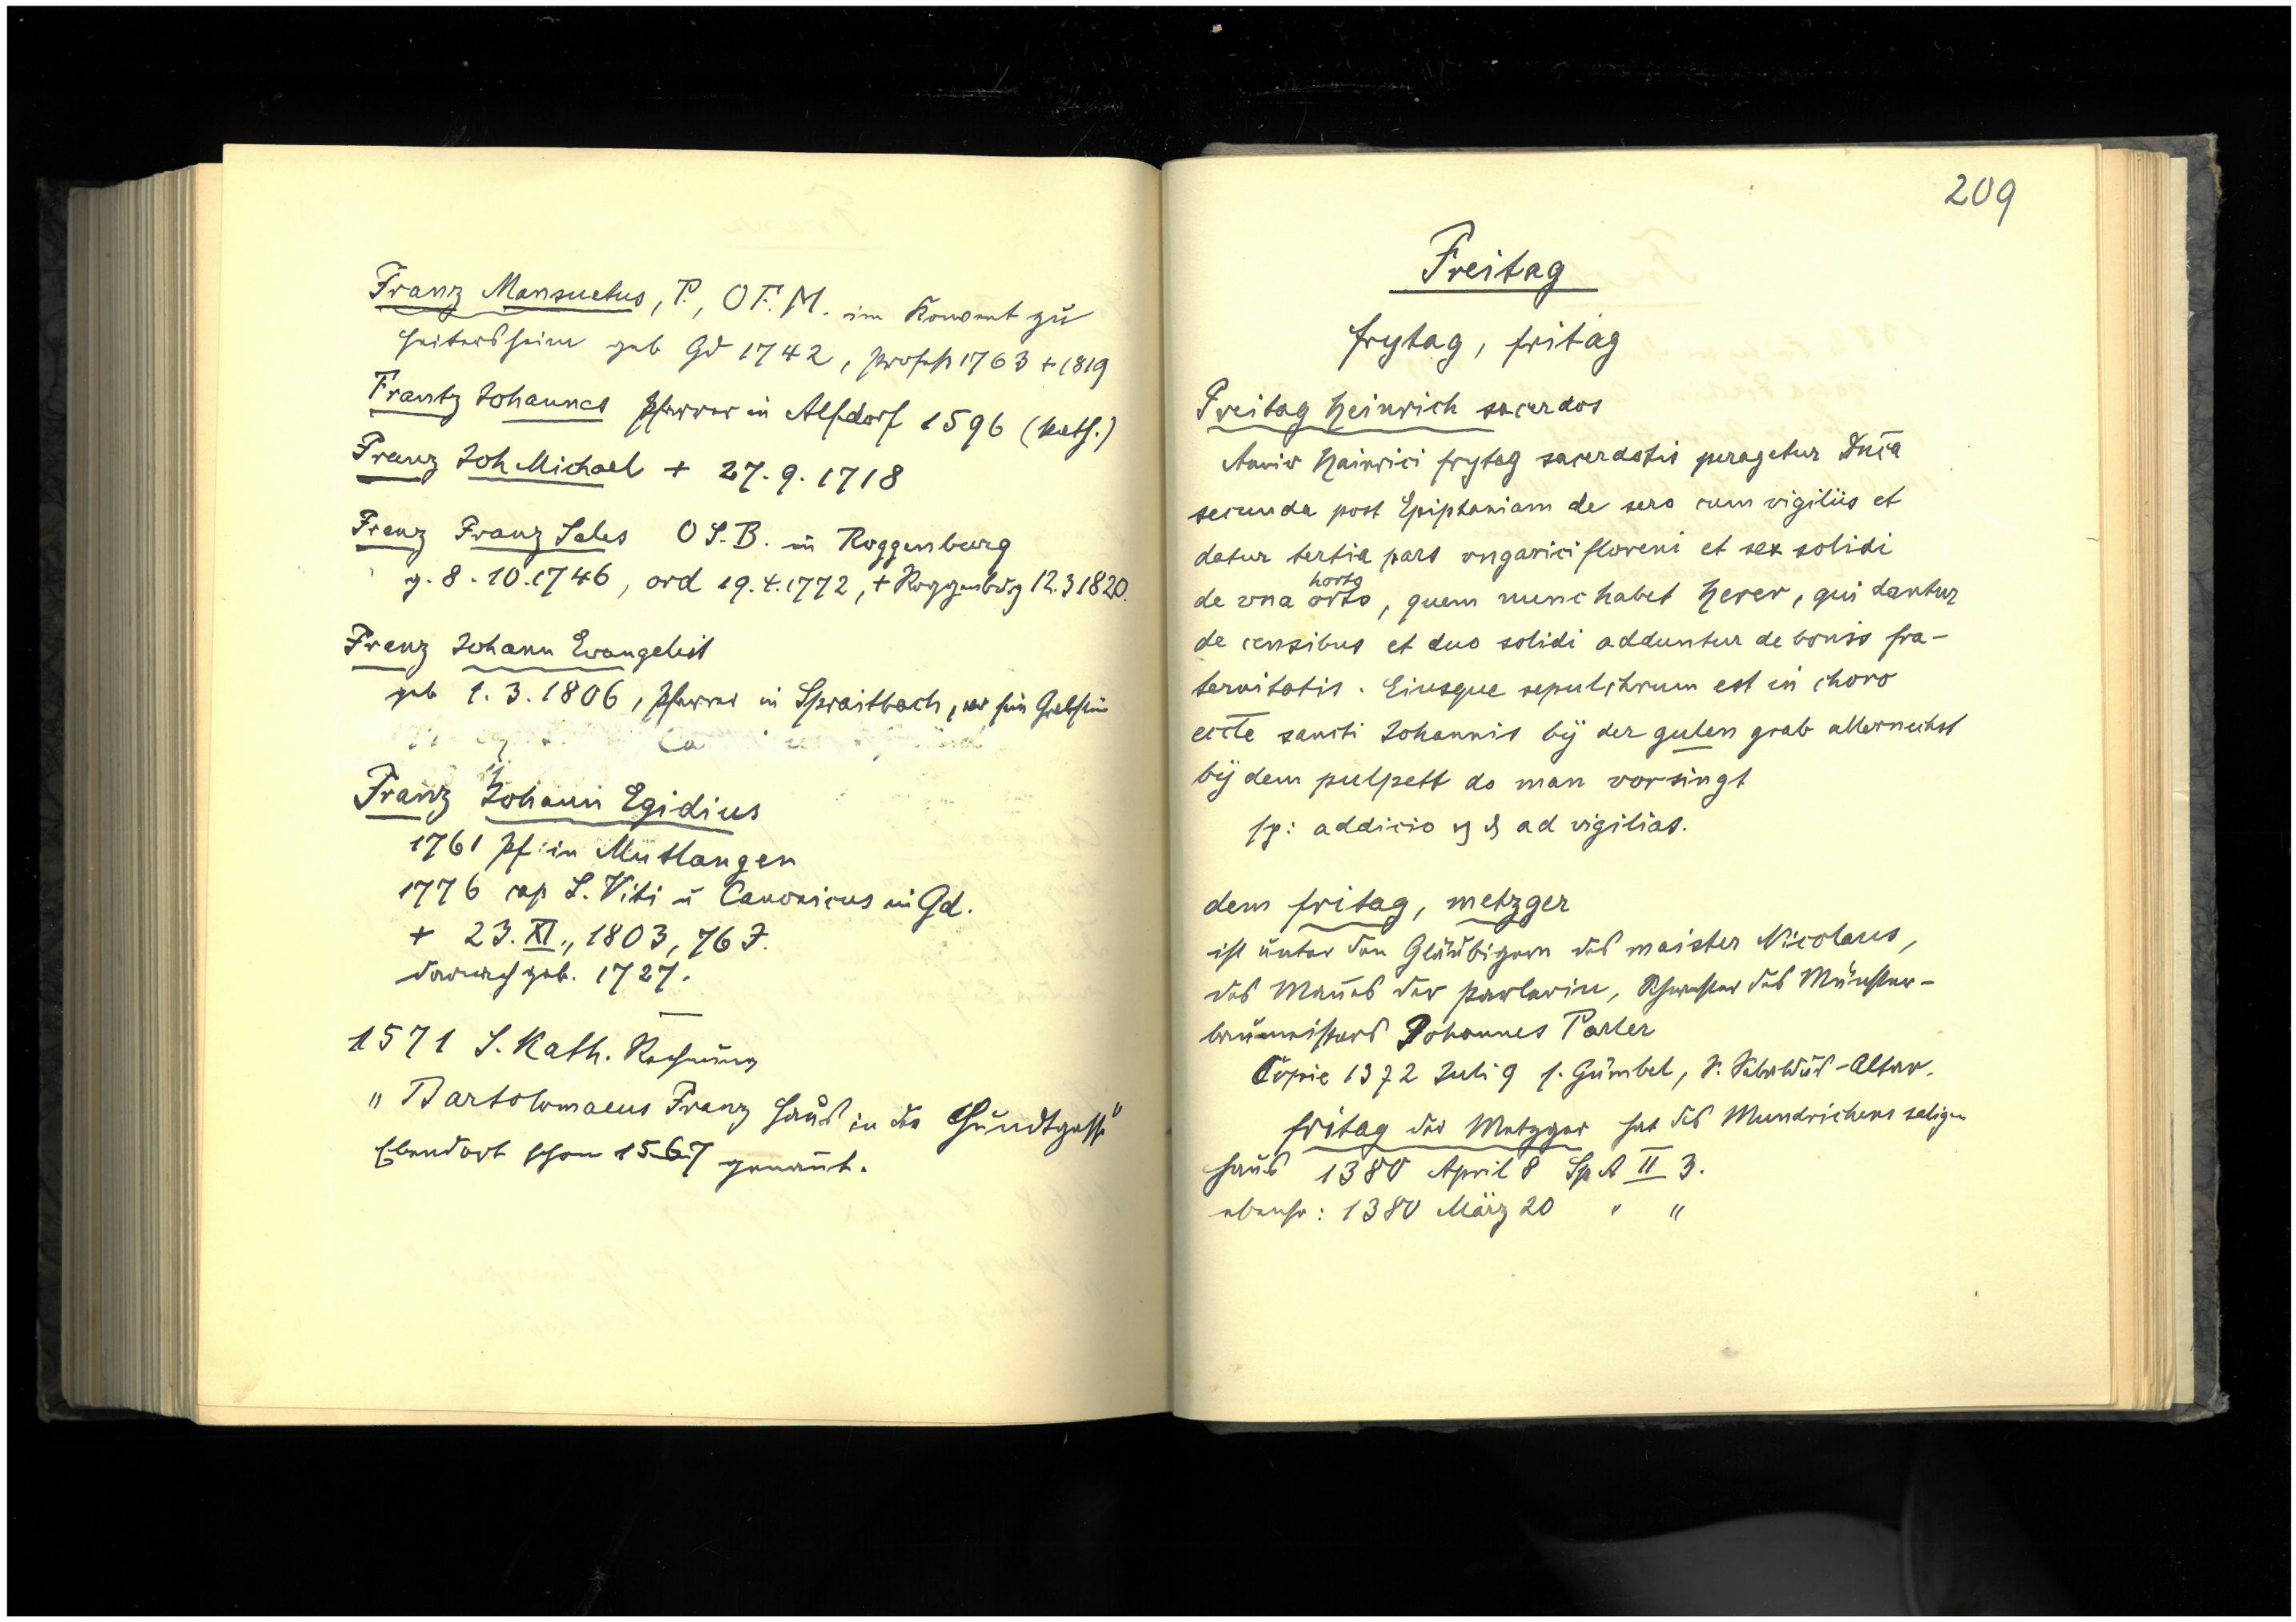 Franz Mansuetus, P., O F. M. im Konvent zu
Heitersheim geb Gd 1742, Profeß 1763 + 1819
Frantz Johannes Pfarrer in Alfdorf 1596 (kath.)
Franz Joh Michael + 27. 9. 1718
Franz Franz Sales O S. B. in Roggenburg
g. 8. 10. 1746, ord 19. 4. 1772, + Roggenburg 12. 3 1820.
Franz Johann Evangelist
geb 1. 3. 1806, Pfarrer in Spraitbach, wo sein Grabstein
Franz Johann Egidius
1761 Pf. in Mutlangen
1776 cap S. Viti u Canonicus in Gd.
+ 23. XI., 1803, 76 J.
darnach geb. 1727.
1571 S. Kath. Rechnung
„ Bartolomaeus Franz Haus in der Hundtgasse"
Ebendort schon 1567 genannt.
209
Freitag
frytag, fritag
Freitag Heinrich sacerdos
Anniv Hainrici frytag sacerdotis peragetur Dnīca
secunda post Epiphaniam de sero cum vigiliis et
datur tertia pars ungarici floreni et sex solidi
horto
de una orto, quem nunc habet Herer, qui dantur
de censibus et duo solidi adduntur de bonis fra-
ternitatis. Eiusque sepulchrum est in choro
eccte sancti Johannis bÿ der guten grab allernechst
bÿ dem pulpett do man vorsingt
sp: addicio ad vigilias.
dem fritag, metzger
ist unter den Gläubigern des maister Nicolaus,
des Mannes der parlerin, Schwester des Münster-
baumeisters Johannes Parler
Copie 1372 Juli 9 s. Gümbel, S. Sebaldus-Altar.
fritag der Metzger hat des Mundrichens seligen
Haus 1380 April 8 Sp A II 3.
ebenso: 1380 März 20 " "